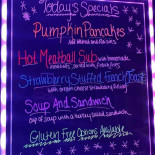 Today's Specials
Pumpkin Pancakes
Hot Meatball Sub with homemade
meatballs, served with French Fries
Strawberry Stuffed French Toast
with cream cheese strawberry filling
Soup And Sandwich
cup of soup with a turkey salad sandwich
Gluten Free Options Available